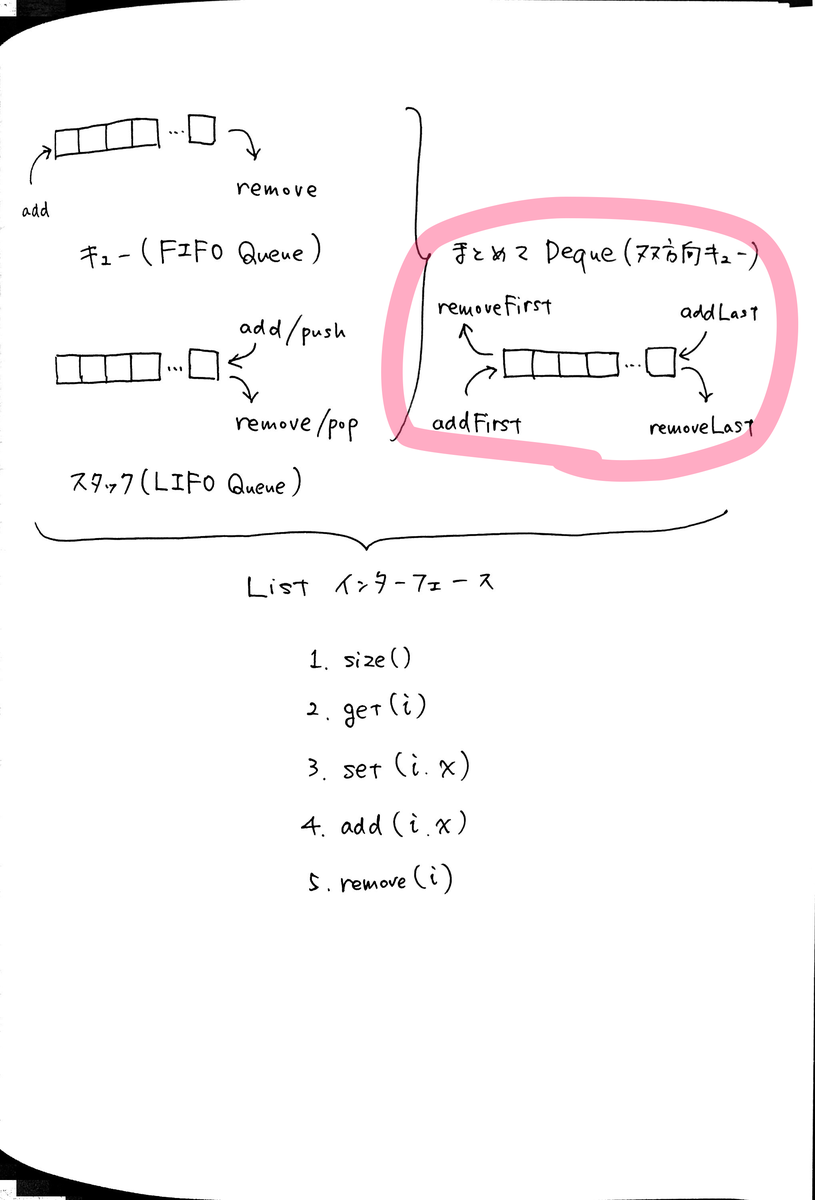 add
remove
キュー(FIFO Queue)
add/push
remove/pop
スタック(LIFO Queue)
まとめて Deque(双方向キュー)
removeFirst
addLast
addFirst
removeLast
List インターフェース
1. size()
2. get(i)
3. set(i.x)
4. add(i.x)
5. remove(i)